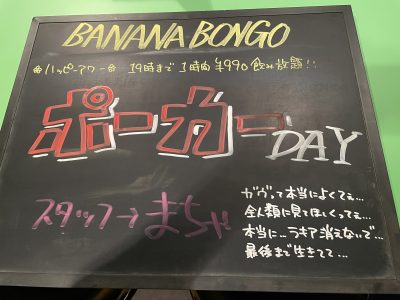 BANANA BONGO
ハッピーアワー 19時まで 1時間 ¥990 飲み放題!!
ポーカー DAY
スタッフ→まちゃ
ガヴって本当によくてぇ…
全人類に見てほしくってぇ…
本当に…ラキア消えないで…
最後まで生きてて…